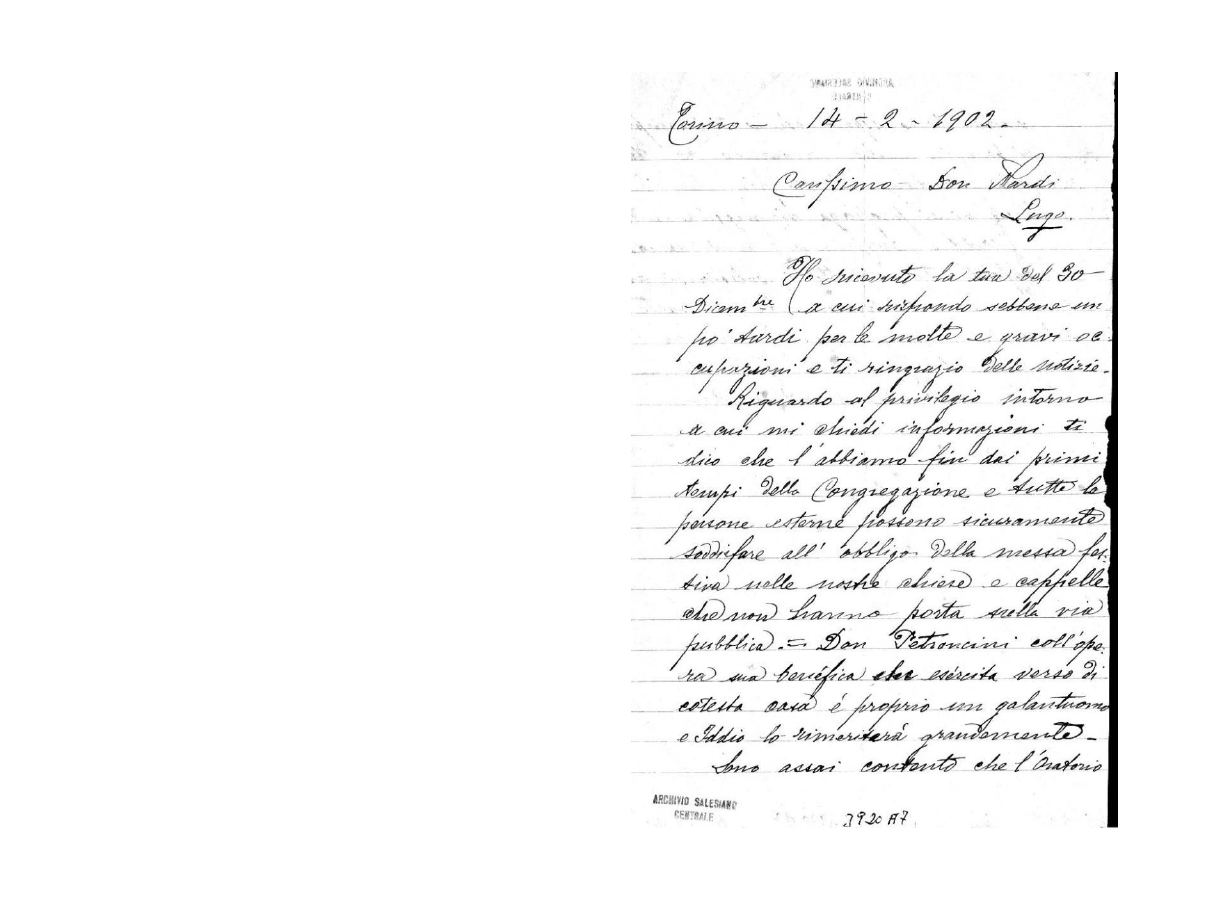 ARCHIVIO SALESIANO
CENTRALE
Torino – 14 – 2 – 1902.
Carissimo Don Nardi
Lugo.
Ho ricevuto la tua del 30
Dicembre a cui rispondo sebbene un
po' tardi per le molte e gravi oc-
cupazioni e ti ringrazio delle notizie.
Riguardo al privilegio intorno
a cui mi chiedi informazioni ti
dico che l'abbiamo fin dai primi
tempi della Congregazione e tutte le
persone esterne possono sicuramente
soddisfare all'obbligo della messa fes-
tiva nelle nostre chiese e cappelle
che non hanno porta sulla via
pubblica. = Don Petroncini coll'ope-
ra sua benéfica che esércita verso di
cotesta casa é proprio un galantuomo
e Iddio lo rimeriterá grandemente –
Sono assai contento che l'Oratorio
ARCHIVIO SALESIANO
CENTRALE
3920 A7